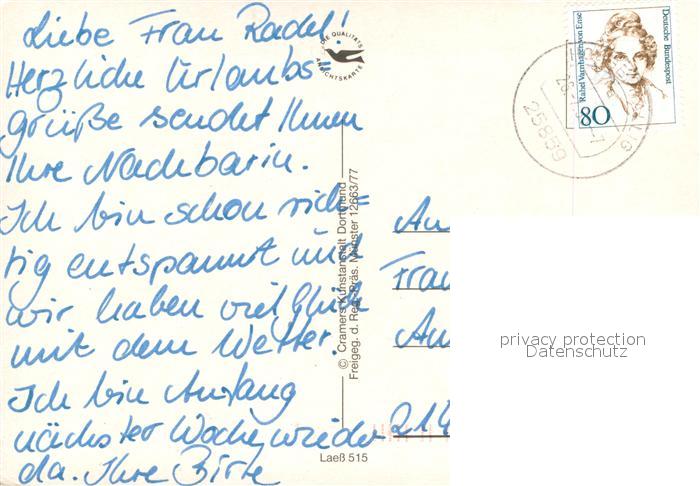 Liebe Frau Radel!
Herzliche Urlaubs=
grüße sendet Ihnen
Ihre Nachbarin.
Ich bin schon rich=
tig entspannt und
wir haben viel Glück
mit dem Wetter.
Ich bin Anfang
nächster Woche wieder
da. Ihre Birte
DIE QUALITÄTS
ANSICHTSKARTE
© Cramers Kunstanstalt Dortmund
Freigeg. d. Reg. Präs. Münster 12663/77
Laeß 515
An
Frau
Am
214
25859
Rahel Varnhagen von Ense
Deutsche Bundespost
80
privacy protection
Datenschutz